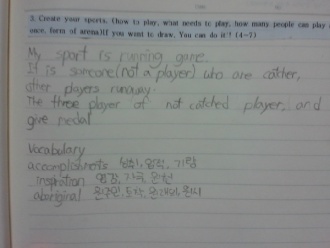 3. Create your sports. (how to play, what needs to play, how many people can play at
once, form of arena) If you want to draw, You can do it! (4~7)
My sport is running game.
It is someone (not a player) who are catcher,
other players runaway.
The three player of not catched player, and
give medal
Vocabulary
accomplishments 성취, 업적, 기량
inspiration 영감, 자극,
aboriginal 원주민, 토착,